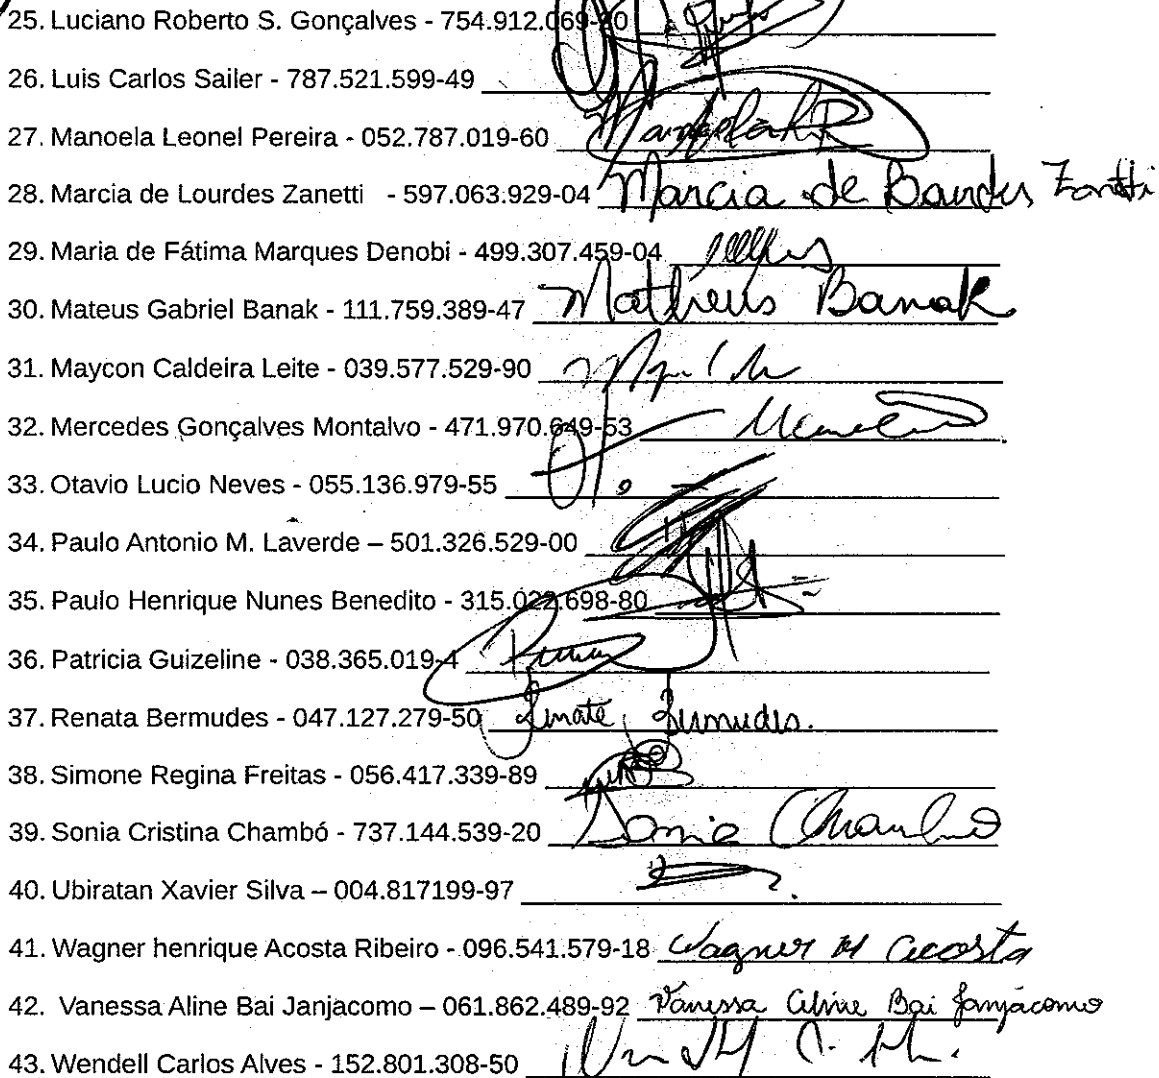 25. Luciano Roberto S. Gonçalves - 754.912.069-20
26. Luis Carlos Sailer - 787.521.599-49
27. Manoela Leonel Pereira - 052.787.019-60
28. Marcia de Lourdes Zanetti - 597.063.929-04 Marcia de Zanetti
29. Maria de Fátima Marques Denobi - 499.307.459-04
30. Mateus Gabriel Banak - 111.759.389-47 Matheus Banak
31. Maycon Caldeira Leite - 039.577.529-90
32. Mercedes Gonçalves Montalvo - 471.970.649-53
33. Otavio Lucio Neves - 055.136.979-55
34. Paulo Antonio M. Laverde – 501.326.529-00
35. Paulo Henrique Nunes Benedito - 315.022.698-80
36. Patricia Guizeline - 038.365.019-4
37. Renata Bermudes - 047.127.279-50
38. Simone Regina Freitas - 056.417.339-89
39. Sonia Cristina Chambó - 737.144.539-20 Sonia Chambó
40. Ubiratan Xavier Silva – 004.817199-97
41. Wagner henrique Acosta Ribeiro - 096.541.579-18 Wagner H Acosta
42. Vanessa Aline Bai Janjacomo – 061.862.489-92 Vanessa Aline Bai Janjacomo
43. Wendell Carlos Alves - 152.801.308-50